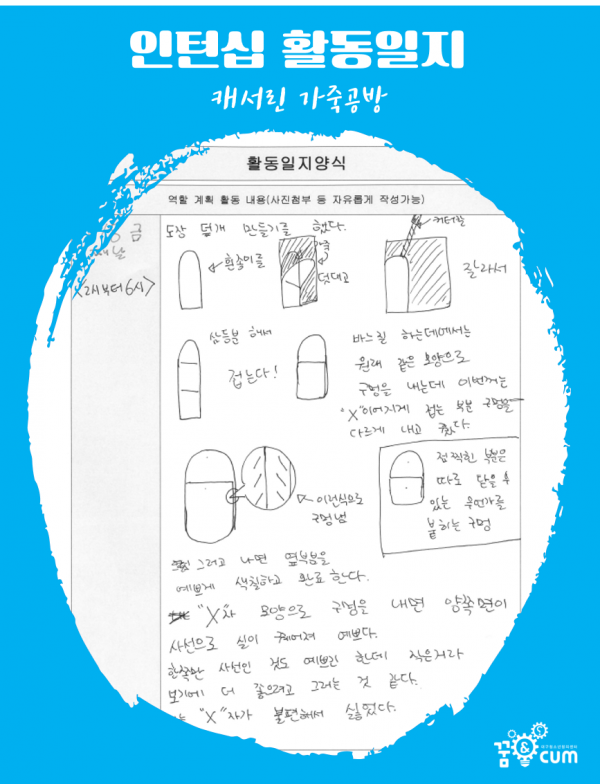 인턴십 활동일지
캐서린 가죽공방
활동일지양식
역할 계획 활동 내용(사진첨부 등 자유롭게 작성가능)
금
째날
<2시부터6시>
도장 덮개 만들기를 했다.
흰종이를
덧대고
커터칼
잘라서
삼등분 해서
접는다!
바느질 하는데에서는
원래 같은 모양으로
구멍을 내는데 이번꺼는
"X"이어지게 접는 부분 구멍을
다르게 내고 줬다.
이런식으로
구멍냄
점 찍힌 부분은
따로 닫을 수
있는 무언가를
붙히는 구멍
그러고 나면 옆부분을
예쁘게 색칠하고 완료한다.
"X"자 모양으로 구멍을 내면 양쪽면이
사선으로 실이 꿰어져 예쁘다.
한쪽만 사선인 것도 예쁘긴 한데 작은거라
보기에 더 좋으려고 그러는 것 같다.
"X"자가 불편해서 싫었다.
꿈&cum